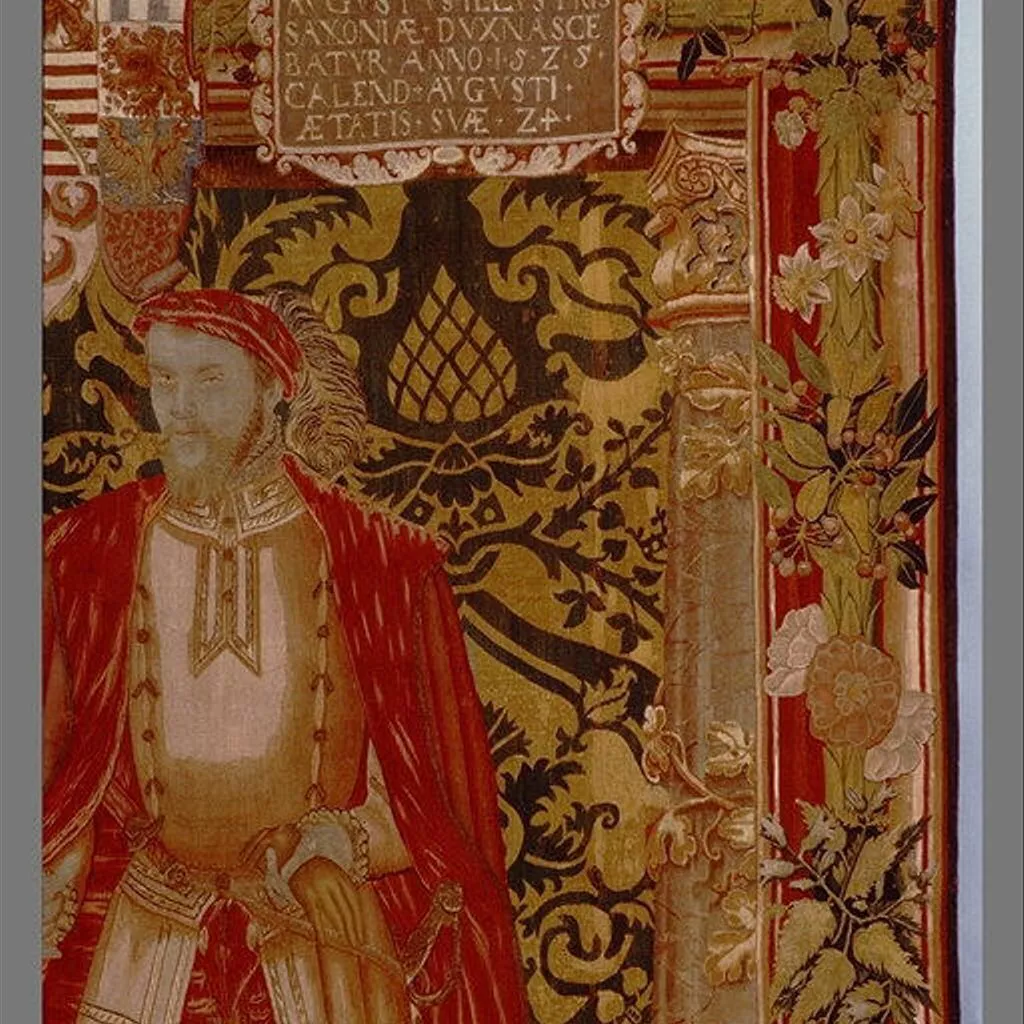 AVGVSTVS ILLVSTRIS
SAXONIÆ · DVX NASCE
BATVR ANNO · 1 · 5 · Z · 5 ·
CALEND · AVGVSTI ·
ÆTATIS · SVÆ · Z4 ·